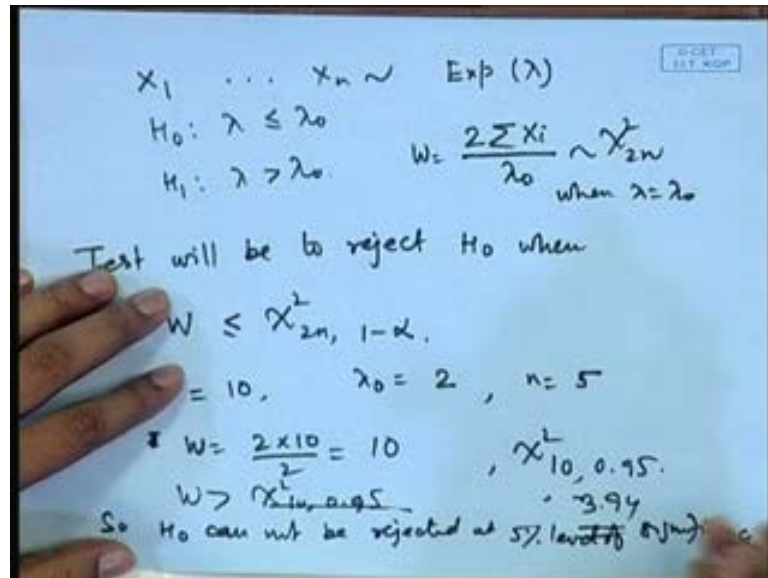 X₁ ... Xₙ ~ Exp (λ)
H₀: λ ≤ λ₀
H₁: λ > λ₀.
W = 2ΣXi / λ₀ ~ χ²₂ₙ
when λ = λ₀
Test will be to reject H₀ when
W ≤ χ²₂ₙ, 1-α.
= 10, λ₀ = 2, n = 5
W = 2×10 / 2 = 10, χ²₁₀, 0.95.
W > χ²₁₀, 0.95 3.94
So H₀ can not be rejected at 5% level of